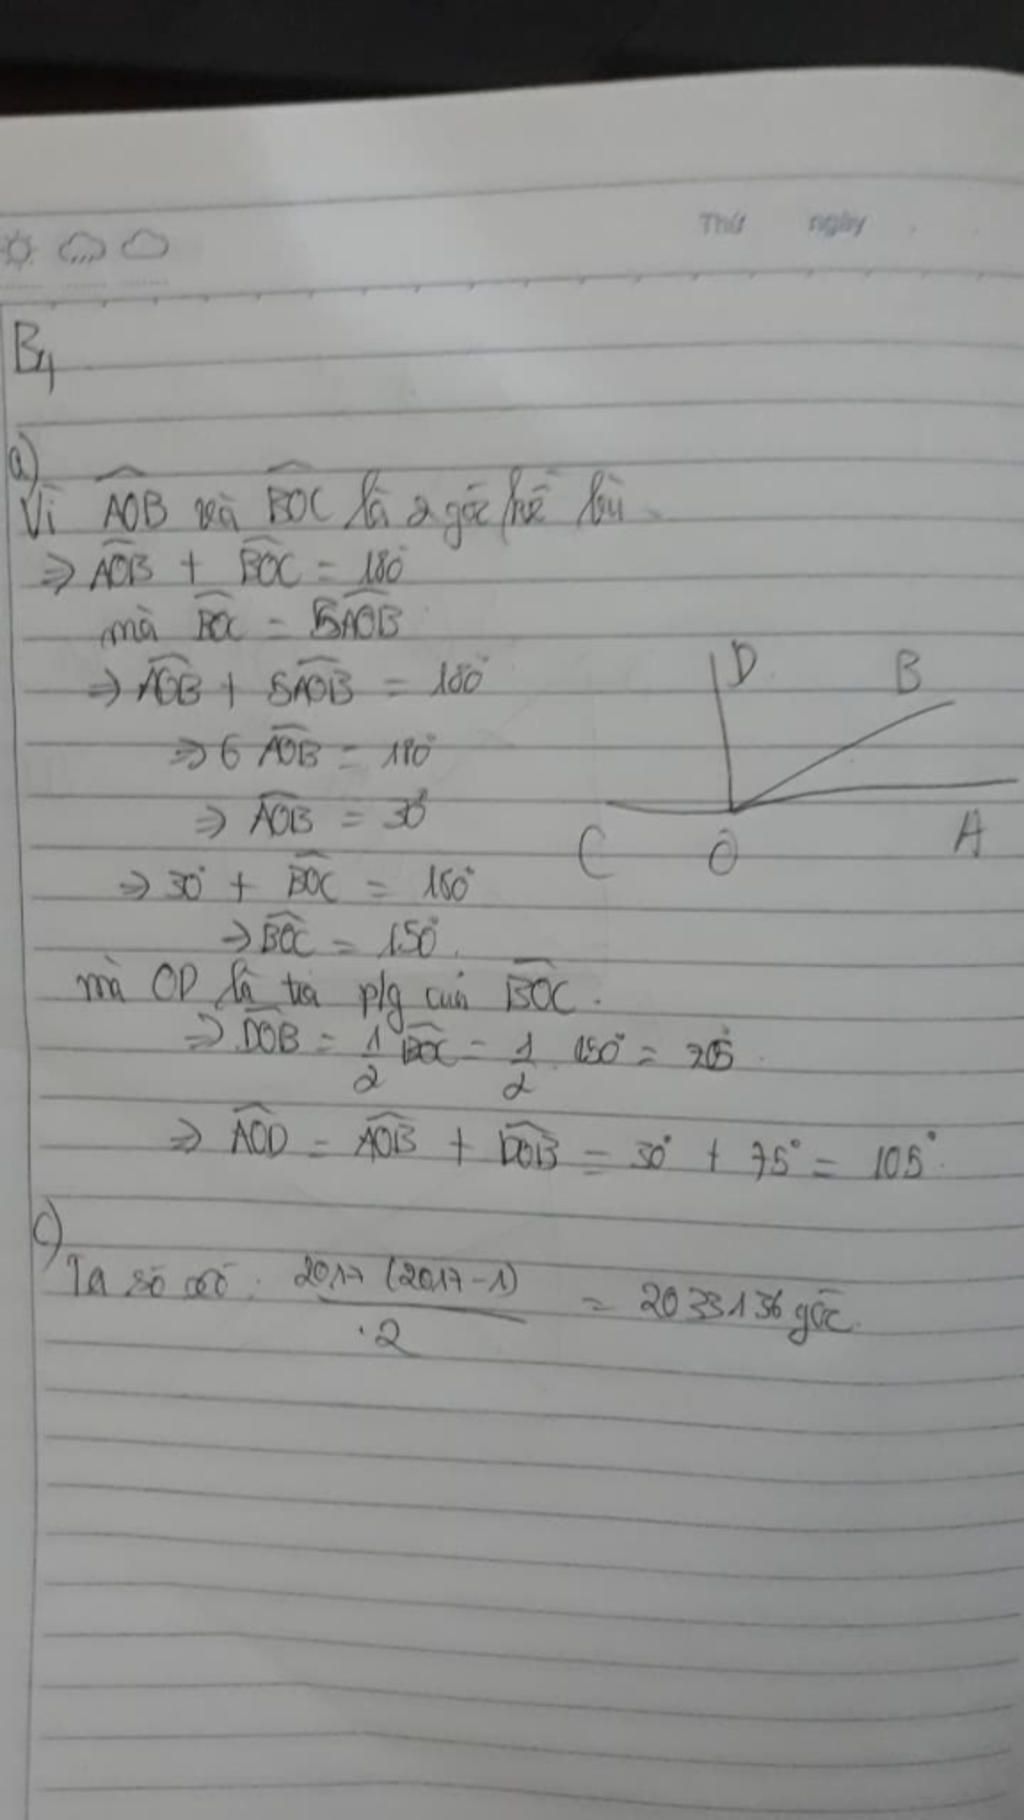 Thứ ngày
B4
a)
Vì AOB và BOC là 2 góc kề bù
⇒ AOB + BOC = 180°
mà BOC = 5AOB
⇒ AOB + 5AOB = 180°
⇒ 6 AOB = 180°
⇒ AOB = 30°
⇒ 30° + BOC = 180°
⇒ BOC = 150°.
mà OD là tia p/g của BOC.
⇒ DOB = 1/2 BOC = 1/2 . 150° = 75°.
⇒ AOD = AOB + DOB = 30° + 75° = 105°.
D B
C O A
c)
Ta sẽ có : 2017 (2017-1) / 2 = 2033136 góc.